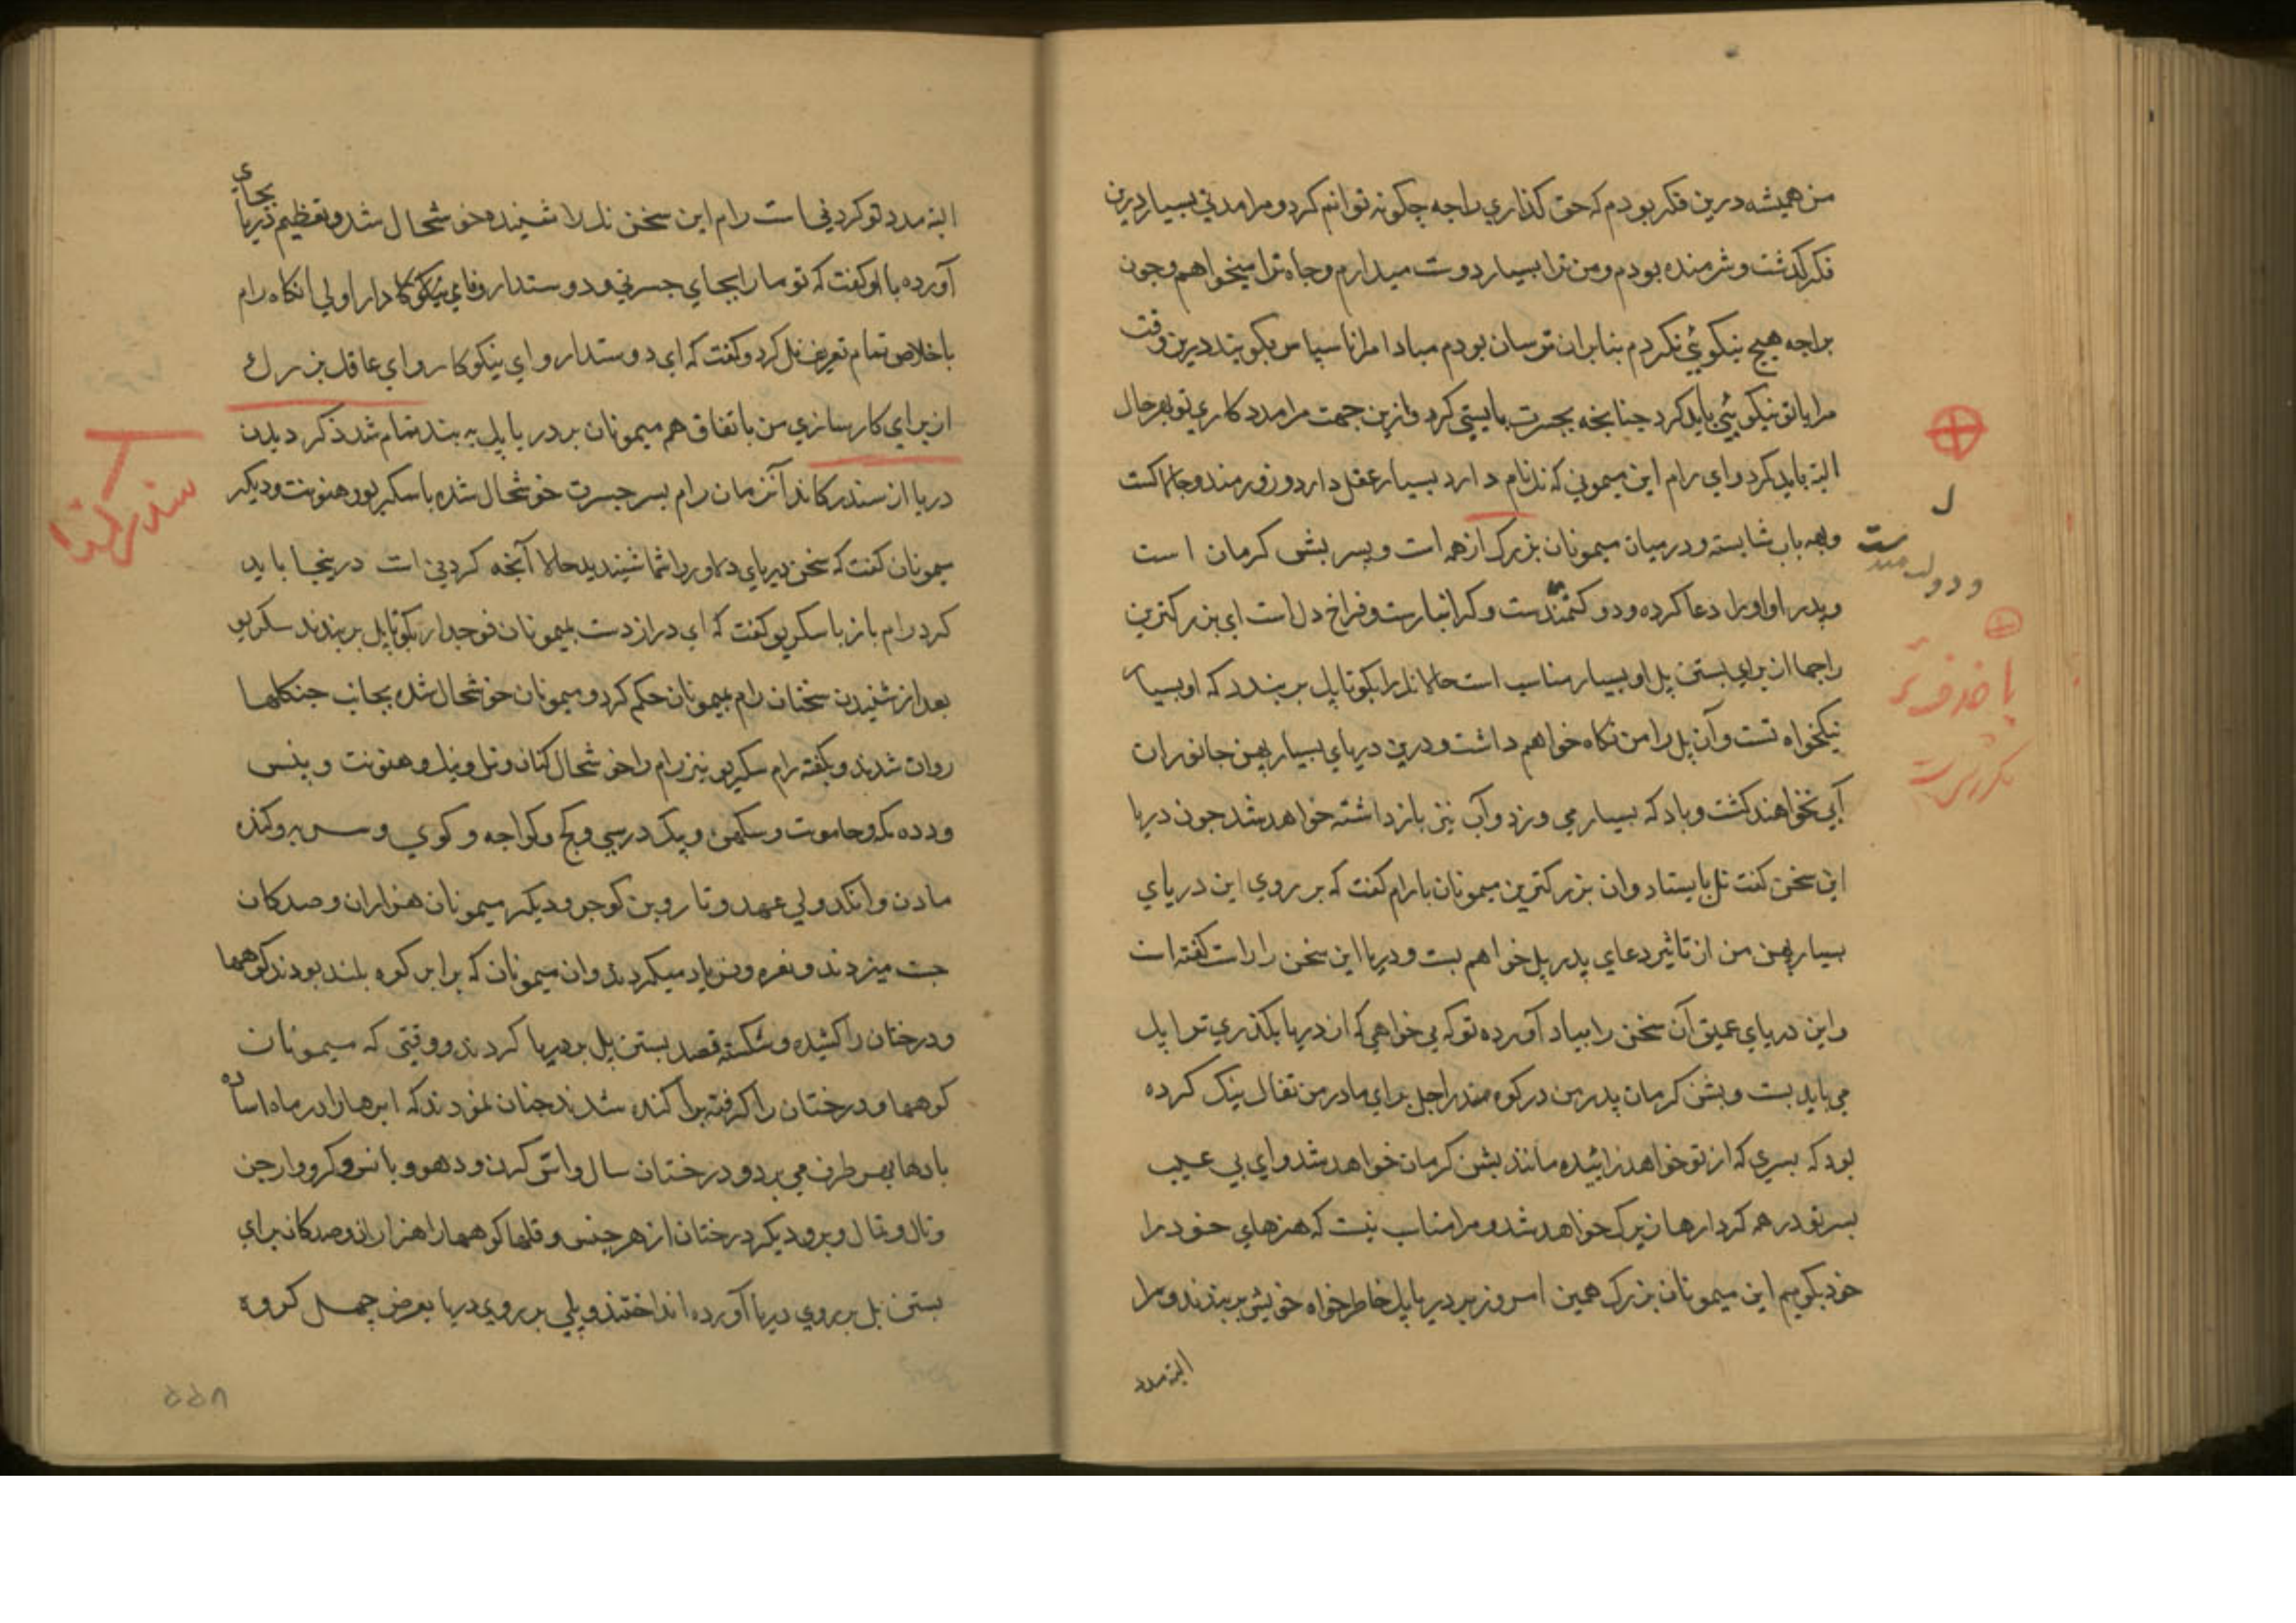 من همیشه درین فکر بودم که حق کذاري راجه چکونه توانم کرد و مرا مدتي بسیار درین
فکر کذشت و شرمنده بودم و من ترا بسیار دوست میدارم و جاه ترا میخواهم و چون
براجه هیچ نیکوئي نکردم بنابران ترسان بودم مبادا مرا ناسپاس بکویند درین وقت
مرا باتو نیکوئي باید کرد چنانچه بجسرت بایستي کرد و ازین جهت مرا مدد کاري تو بهر حال
البته باید کرد و اي رام این میموني که نل نام دارد بسیار عقل دارد و زورمند و چالاکست
و بهمه باب شایسته و در میان میمونان بزرک از همه است و پسر بشن کرمان است
و پدر او اورا دعا کرده و دولتمندست و کرانبارست و فراخ دل است اي بزرکترین
راجها از براي بستن پل او بسیار مناسب است حالا نل را بکو تا پل بر بندد که او بسیار
نیکخواه تست و آن پل را من نکاه خواهم داشت و درین دریاي بسیار پهن جانوران
آبي نخواهند کشت و باد که بسیار مي وزد و آب نیز باز داشته خواهد شد چون دریا
این سخن کفت نل بایستاد و ان بزرکترین میمونان با رام کفت که بر روي این دریاي
بسیار پهن من از تاثیر دعاي پدر پل خواهم بست و دریا این سخن را راست کفته است
و این دریاي عمیق آن سخن را بیاد آورده تو که مي خواهي که از دریا بکذري ترا پل
مي باید بست و بشن کرمان پدر من در کوه مندراجل براي مادر من تفال نیک کرده
بود که پسري که از تو خواهد زائیده مانند بشن کرمان خواهد شد و اي بي عیب
پسر تو در همه کردارها زیرک خواهد شد و مرا مناسب نیست که هنرهاي خود را
خود بکویم این میمونان بزرک همین امروز بر دریا پل خاطر خواه خویش بر بندند و مرا
البته مدد
و دولتمندست
البته مدد تو کردني است رام این سخن نل را شنیده خوشحال شد و تعظیم دریا بجاي
آورده با او کفت که تو مارا بجاي جسرتي و دوستدار وفاي نیکوکار داراولي انکاه رام
باخلاص تمام تعریف نل کرد و کفت که اي دوستدار و اي نیکوکار و اي عاقل بزرک
از براي کارسازي من باتفاق هم میمونان بر دریا پل به بند تمام شد ذکر دیدن
دریا از سندرکاند آنزمان رام پسر جسرت خوشحال شده با سکریو و هنونت و دیکر
میمونان کفت که سخن دریاي دلاور را شما شنیدید حالا آنچه کردني است درینجا باید
کرد رام باز با سکریو کفت که اي دراز دست بمیمونان فوجدار بکو تا پل بر بندند سکریو
بعد از شنیدن سخنان رام بمیمونان حکم کرد و میمونان خوشحال شده بجانب جنکلها
روان شدند و بکفته رام سکریو نیز رام را خوشحال کنان و نل و نیل و هنونت و پنس
مادن و انکد ولي عهد و تار و بن کوجر و دیکر میمونان هزاران و صدکان
جست میزدند و نعره و فریاد میکردند و ان میمونان که برابر کوه بلند بودند کوهها
و درختان را کشیده و شکسته قصد بستن پل بر دریا کردند و وقتي که میمونان
کوهها و درختان را کرفته پراکنده شدند چنان نمودند که ابرها را در ماه اساده
بادها بهر طرف مي برد و درختان سال و اس کرن و دهو و بانس و کرو و ارجن
و تال و تمال و بر و دیکر درختان از هر جنس و قلها کوهها را هزاران و صدکان براي
بستن پل بر روي دریا آورده انداختند و پلي بر روي دریا بعرض چهل کروه
سندرکاند
۵۵۸